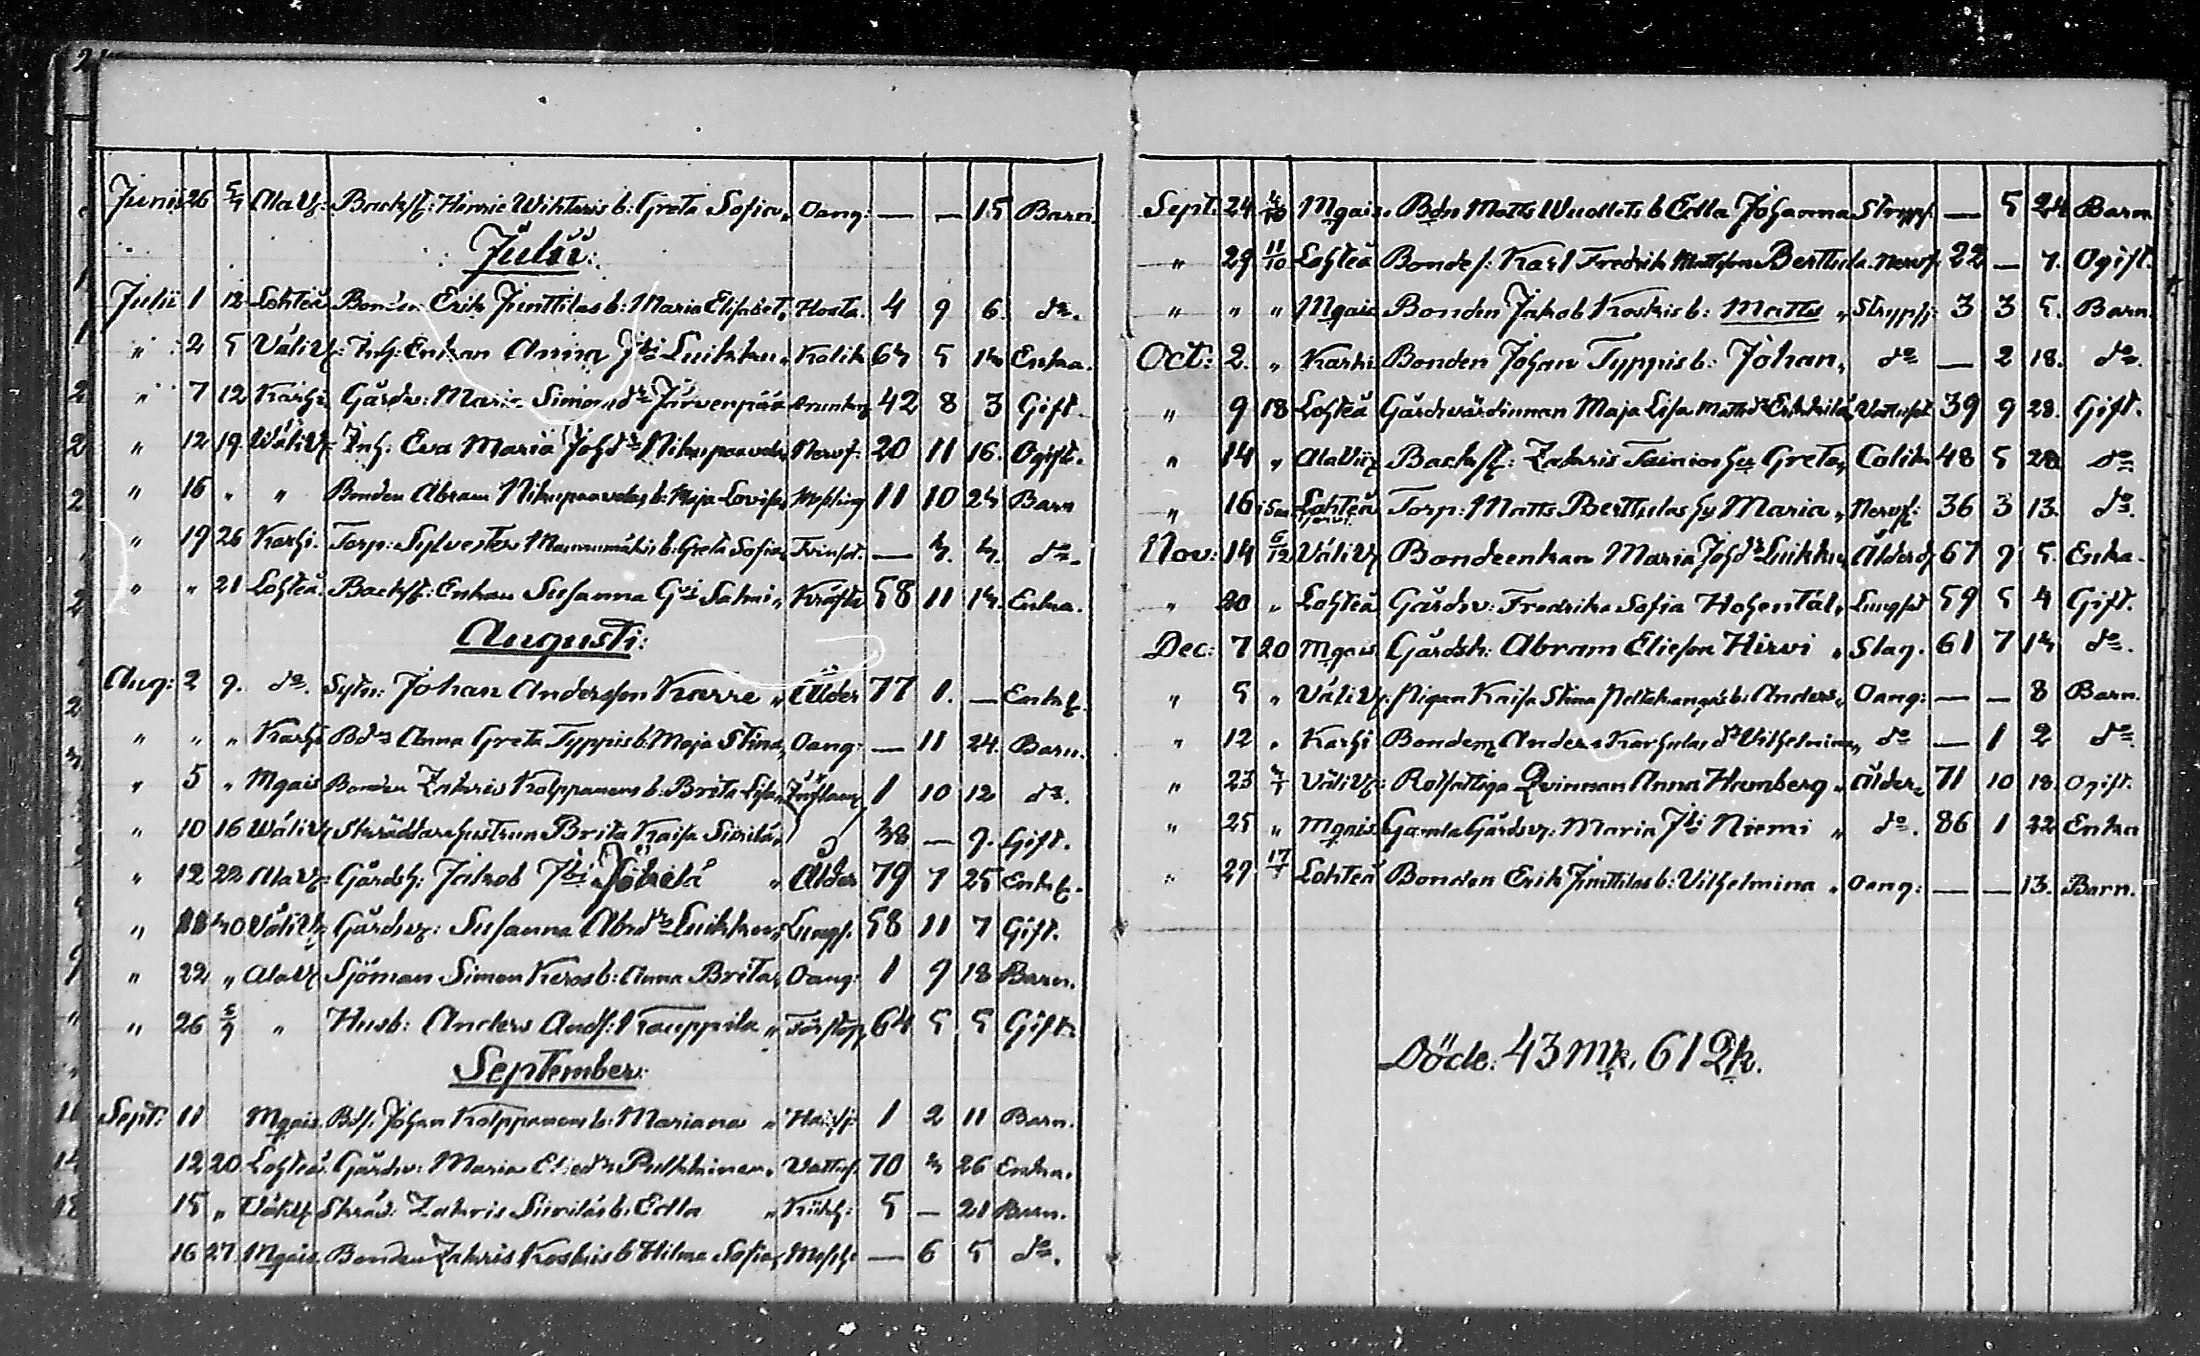 Junii 26 5/7 AlaV: Backst: Henric Wiktaris b: Greta Sofia „ Oang: — — 15 Barn.
Julii:
Julii 1 12 Lohteå Bonden Erik Junttilas b: Maria Elisabet „ Hosta. 4 9 6 do.
„ 2 5 VäliV: Inh: Enkan Anna Luikku „ Kolik 5 Enka.
„ 7 12 Karhi Gårdv: Maria Simonsdr Järvenpää 42 8 3 Gift.
„ 12 19 WäliV: Inh: Eva Maria Johdr Nikupaavola Nervf: 20 11 16. Ogift.
„ 16 „ „ Bonden Abram Nikupaavolas b: Maja Lovisa Messling 11 10 Barn
„ 19 26 Karhi. Torp: Sylvester b: Greta Sofia — do.
„ „ 21 Lohteå. Backst: Enkan Susanna Salmi „ Kräfta 58 11 Enka.
Augusti:
Aug: 2 9. do. Sytn: Johan Andersson Karre „ Ålder 77 1. — Enkl.
„ „ „ Karhi Bds Anna Greta Typpis b: Maja Stina, Oang: — 11 24. Barn.
„ 5 „ Mgais Bonden Zakris Kolppanens b: Brita Lisa „ 1 10 12 do.
„ 10 16 WäliV Skräddarehustrun Brita Kaisa Siirilä „ 38 — 9. Gift.
„ 12 22 AlaV: Gårdsh: Jakob Jbi Jökelä „ Ålder 79 7 25 Enkl.
„ 30 VäliV Gårdsv: Susanna Abrdr Luikku „ Lungs. 58 11 7 Gift.
„ 22 „ AlaV Sjöman Simon Keros b: Anna Brita, Oang: 1 9 18 Barn.
„ 26 5/9 „ Husb: Anders Ands: Kauppila „ Förstopp 64 5 5 Gift.
September:
Sept: 11 Mgais. Bds. Johan Kolppanens b: Mariana „ 1 2 11 Barn.
12 20 Lohteå. Gårdv: Maria Eliedr Pulkkinen. Vattus. 70 26 Enka.
15 „ Skräd: Zakris Siirilas b: Edla „ Kikh: 5 — 21 Barn.
16 27 Mgais Bonden Zakris Koskis b Hilma Sofia, — 6 5 do.
Sept: 24 Mgais. Bdn Matts Wuollets b Edla Johanna Stryps. — 5 24 Barn
„ 29 11/10 Lohteå Bondes: Karl Fredrik Mattsson Berttula. Nervf. 22 — 7. Ogift.
„ „ „ Mgais Bonden Jakob Koskis b: Matts „ Strypsj: 3 3 5. Barn.
Oct: 2. „ Karhi Bonden Johan Typpis b: Johan, do — 2 18. do.
„ 9 18 Lohteå Gårdsvärdinnan Maja Lisa Mattsdr Erkkilä Vattusot 39 9 28. Gift.
„ 14 „ AlaViiz Backst: Zakris Tainios hu Greta, Colik 48 5 28 do
„ 16 Lohteå Torp: Matts Berttulas hu Maria „ Nervf: 36 3 13. do.
Nov: 14 6/12 VäliV Bondeenkan Maria Johdr Luikku „ Ålderd 67 9 5. Enka.
„ 20 „ Lohteå Gårdsv: Fredrika Sofia Hohental, Lungsot 59 5 4 Gift.
Dec: 7 20 Mgais Gårdsh: Abram Elieson Hirvi „ Slag. 61 7 do.
„ 5 „ VäliV: Pigan Kaisa Stina b: Anders „ Oang: — — 8 Barn.
„ 12 „ Karhi Bonden Anders Karhulas dr Vilhelmina „ do — 1 2 do.
„ 23 VäliV: Rotfattiga Qvinnan Anna Hamberg „ Ålder „ 71 10 18. Ogift.
„ 25 „ Mgais Gamla Gårdsv: Maria Jbi Niemi „ do. 86 1 22 Enka
„ 27 17 Lohteå Bonden Erik Junttilas b: Vilhelmina „ Oang: — — 13. Barn.
Döde: 43 Mk, 61 Qk.